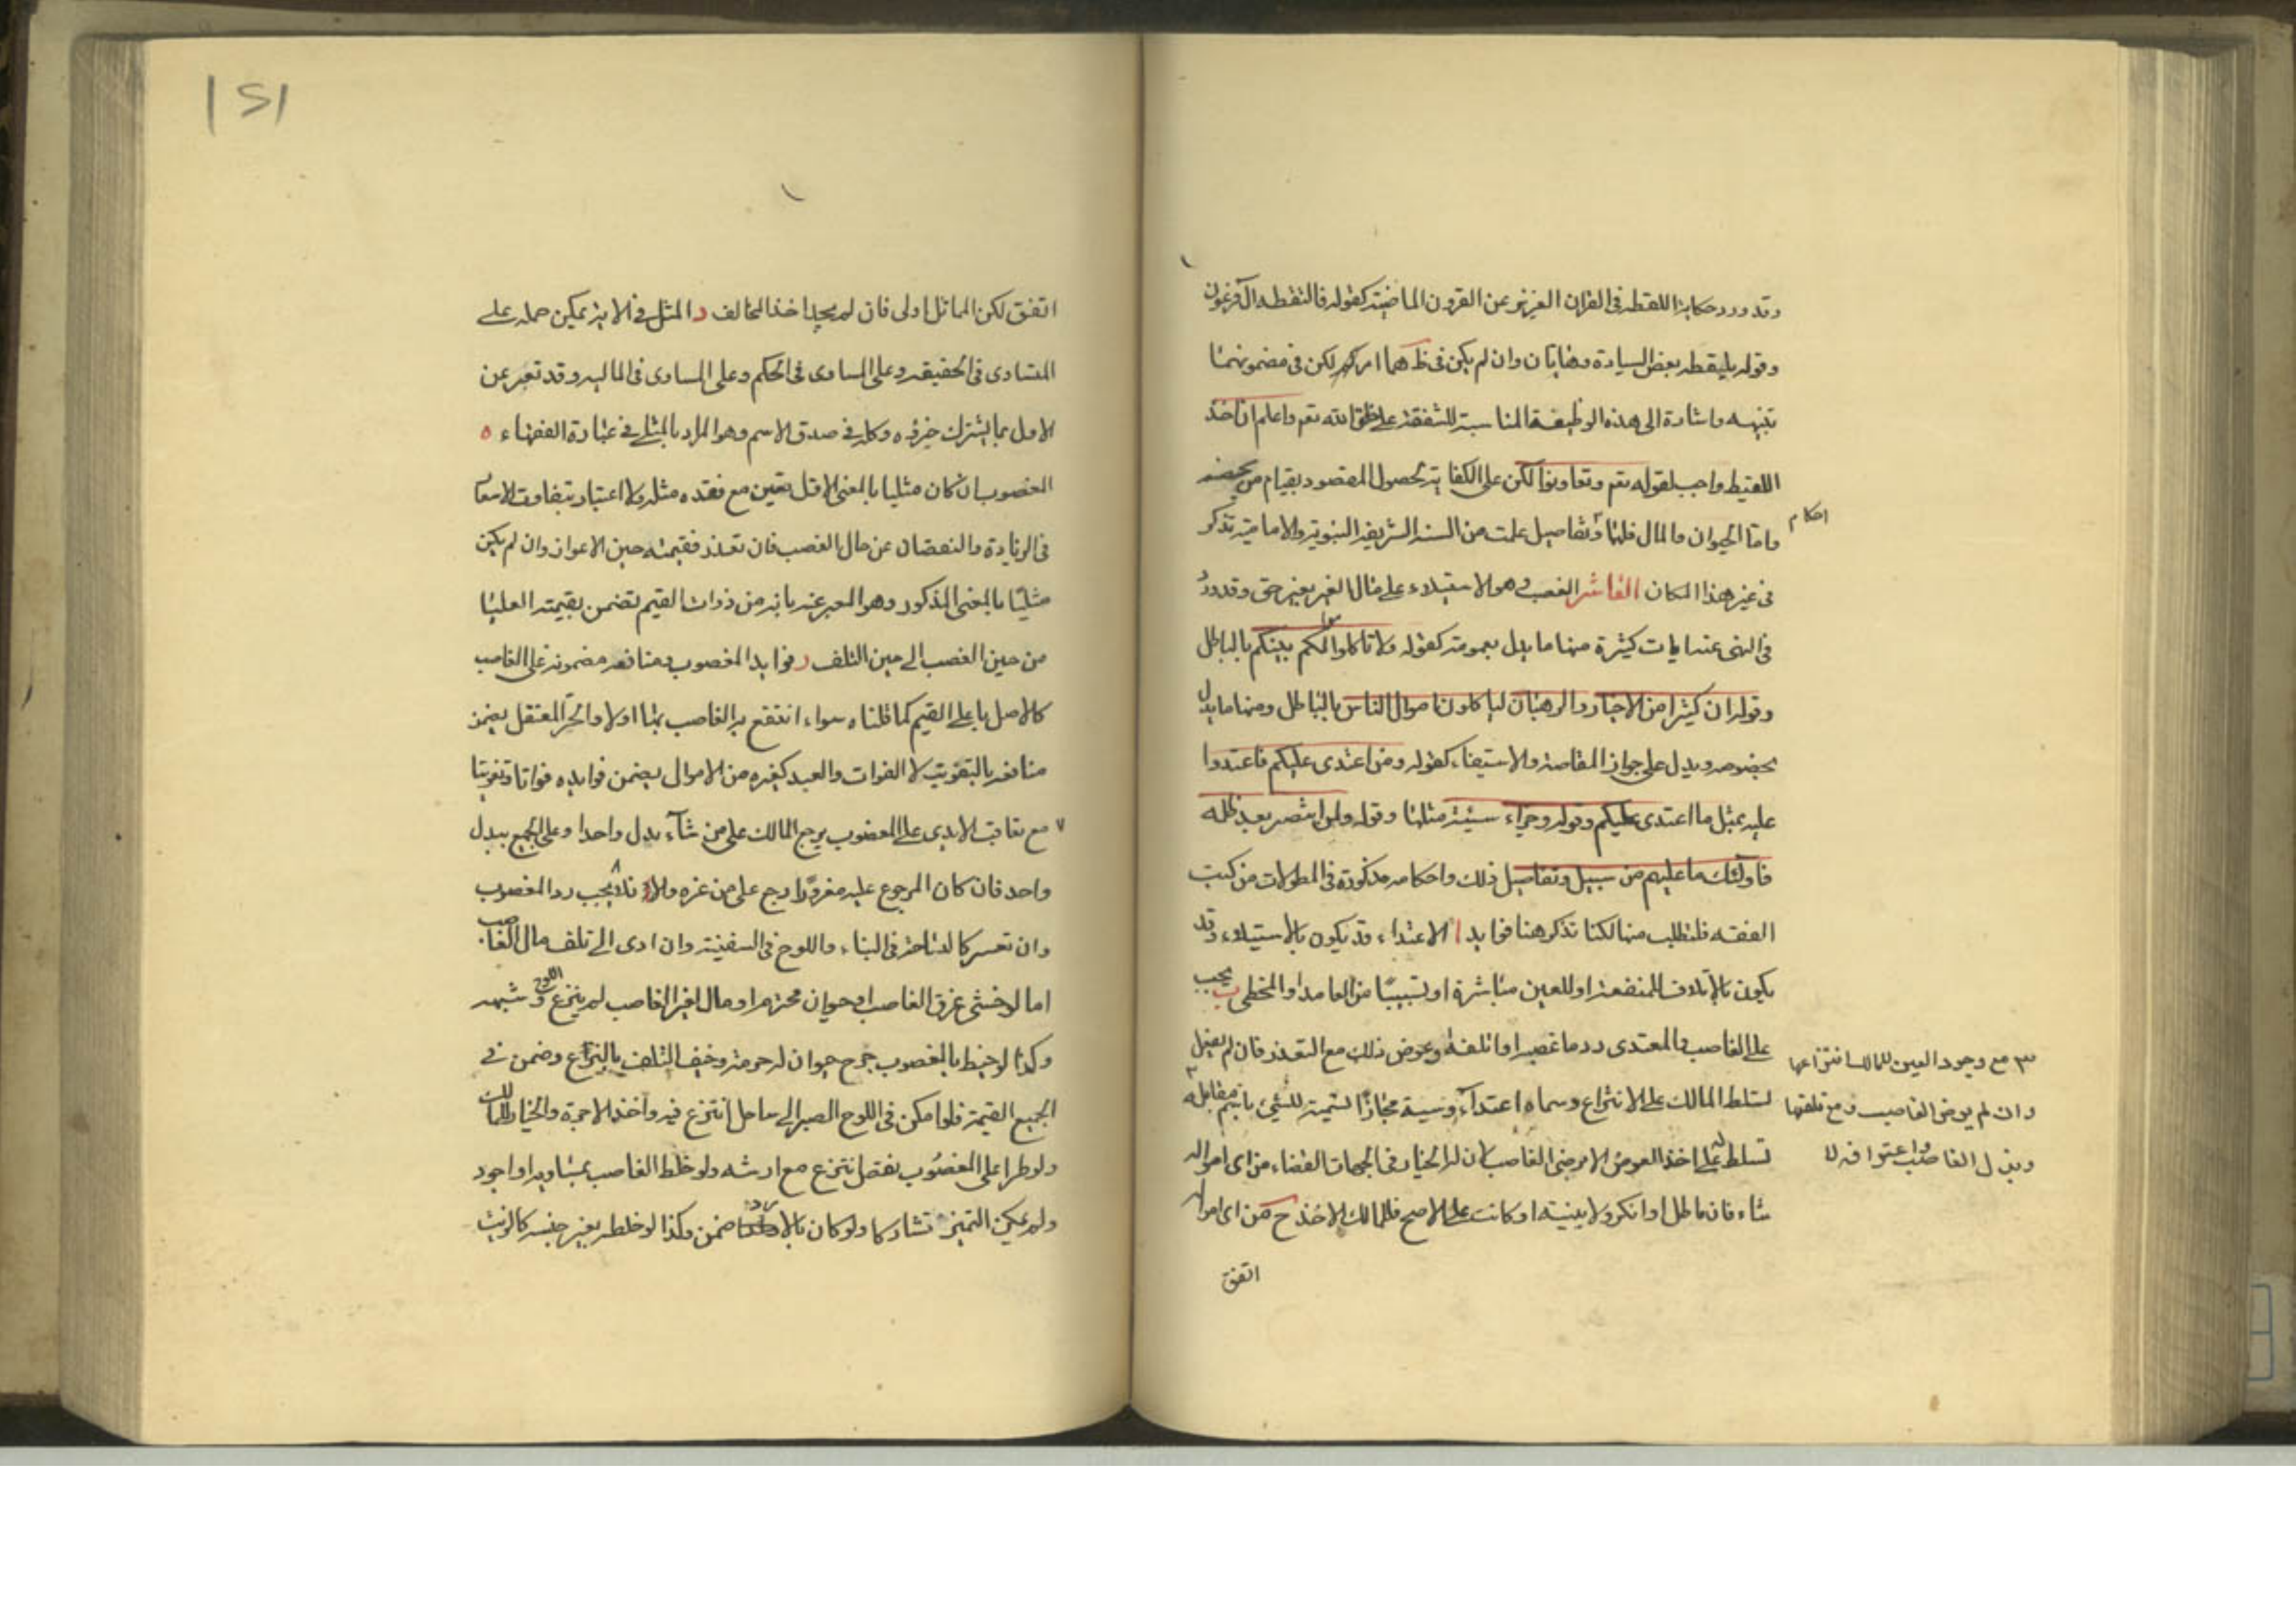 وقد ورد حكاية اللقطة فى القران العزيز عن القرون الماضية كقوله فالتقطه ال فرعون
وقوله يلتقطه بعض السيارة وهاتان وان لم يكن فى ظ هما امر لكن فى مضمونهما
تنبيه واشارة الى هذه الوظيفة المناسبة للشفقة على خلق الله تعم واعلم ان اخذ
اللقيط واجب لقوله تعم وتعاونوا لكن على الكفاية لحصول المقصود بقيام من
احكام
واما الحيوان والمال فلهما وتفاصيل علمت من السنة الشريفة النبوية والامامية تذكر
فى غير هذا المكان العاشر الغصب وهو الاستيلاء على مال الغير بغير حق وقد ورد
فى النهى عنه ايات كثيرة منها ما يدل بعمومه كقوله ولا تاكلوا اموالكم بينكم بالباطل
وقوله ان كثيرا من الاحبار والرهبان لياكلون اموال الناس بالباطل ومنها ما يدل
بخصوصه ويدل على جواز المقاصة والاستيفاء كقوله ومن اعتدى عليكم فاعتدوا
عليه بمثل ما اعتدى عليكم وقوله وجزاء سيئة مثلها وقوله ولمن انتصر بعد ظلمه
فاولئك ما عليهم من سبيل وتفاصيل ذلك واحكامه مذكورة فى المطولات من كتب
الفقه فلتطلب منها لكنا نذكر هنا فوايد ا الاعتداء قد يكون بالاستيلاء وقد
يكون بالاتلاف للمنفعة او للعين مباشرة او تسبيبا من العامد او المخطى ب يجب
على الغاصب والمعتدى رد ما غصبه او اتلفه وعوض ذلك مع التعذر فان لم يفعل
٣ مع وجود العين للمالك انتزاعها
تسلط المالك على الانتزاع وسماه اعتداء وسيئة مجازا لتسمية للشئ باسم مقابله
وان لم يرض الغاصب ومع تلفها
تسلط على اخذ العوض الا برضى الغاصب لان له الخيار فى الجهات القضاء من اى امواله
وبذل الغاصب واعترافه لا
شاء فان ماطل او انكر ولا بينة او كانت على الاصح فللمالك الاخذ ح من اى امواله
اتفق
١٢١
اتفق لكن المماثل اولى فان لم يجد اخذ المخالف د المثل فى الاية يمكن حمله على
المتساوى فى الحقيقة وعلى المساوى فى الحكم وعلى المساوى فى المالية وقد تعبر عن
الاول بما يشترك جزؤه وكله فى صدق الاسم وهو المراد بالمثلى فى عبارة الفقهاء ه
المغصوب ان كان مثليا بالمعنى الاول تعين مع فقده مثله ولا اعتبار بتفاوت الاسعار
فى الزيادة والنقصان عن حال الغصب فان تعذر فقيمته حين الاعواز وان لم يكن
مثليا بالمعنى المذكور وهو المعبر عنه بانه من ذوات القيم تضمن بقيمته العليا
من حين الغصب الى حين التلف و فوايد المغصوب ومنافعه مضمونة على الغاصب
كالاصل باعلى القيم كما قلناه سواء انتفع به الغاصب بها او لا والحر المعتقل يضمن
منافعه بالتفويت لا الفوات والعبد كغيره من الاموال يضمن فوايده فواتا وتفويتا
٧ مع تعاقب الايدى على المغصوب يرجع المالك على من شاء ببدل واحد او على الجميع ببدل
واحد فان كان المرجوع عليه مغرورا رجع على من غره والا فلا ٨ يجب رد المغصوب
وان تعسر كالساحة فى البناء واللوح فى السفينة وان ادى الى تلف مال الغاصب
اما لو خشى غرق الغاصب او حيوان محترم او مال لغير الغاصب لم ينزع اللوح وشبهه
وكذا لو خيط بالمغصوب جرح حيوان له حرمة وخيف التلف بالنزاع وضمن فى
الجميع القيمة فلو امكن فى اللوح الصبر الى ساحل انتزع فيه واخذ الاجرة والخيار للمالك
ولو طرا على المغصوب نقص انتزع مع ارشه ولو خلط الغاصب بمساويه او اجود
ولم يمكن التميز تشاركا ولو كان بالاردى ضمن وكذا لو خلطه بغير جنسه كالزيت